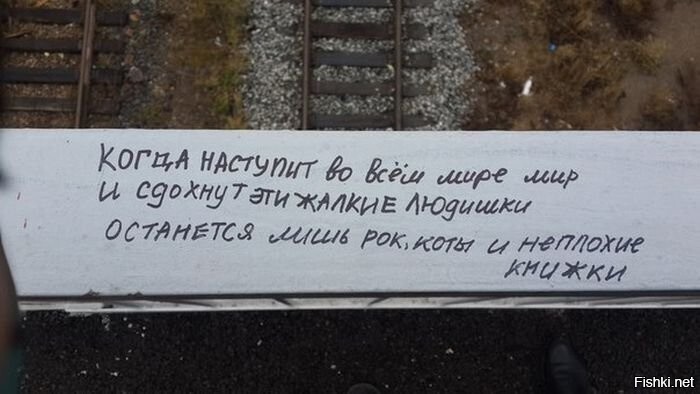 КОГДА НАСТУПИТ ВО ВСЁМ МИРЕ МИР
И СДОХНУТ ЭТИ ЖАЛКИЕ ЛЮДИШКИ
ОСТАНЕТСЯ ЛИШЬ РОК, КОТЫ И НЕПЛОХИЕ
КНИЖКИ
Fishki.net